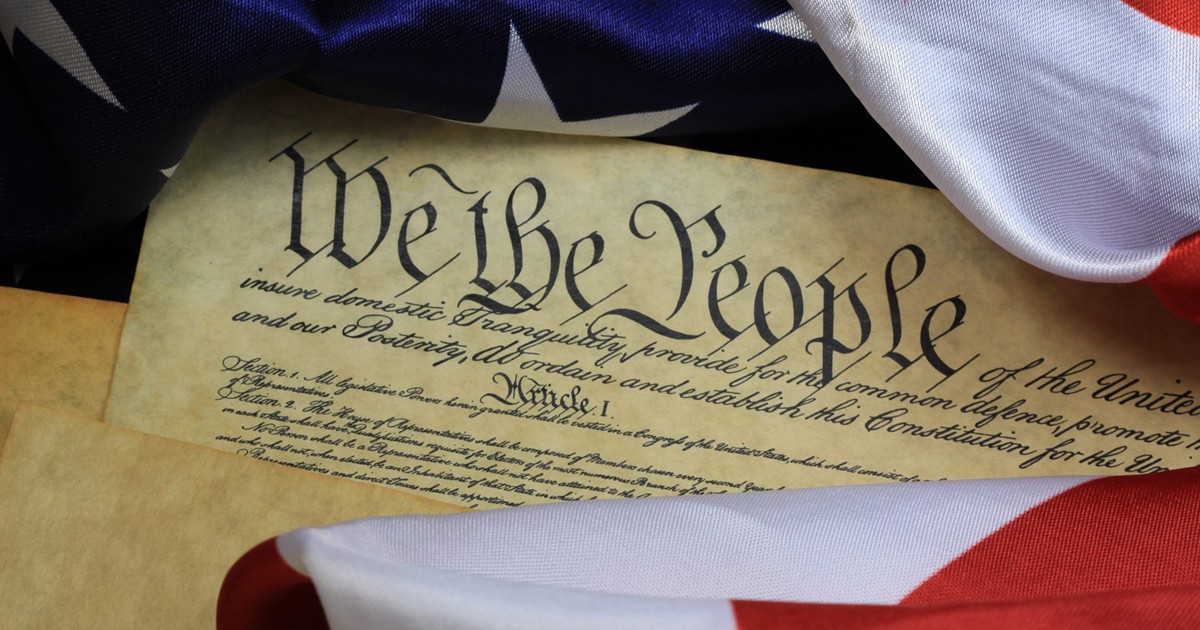 We the People of the United
insure domestic Tranquility, provide for the common defence, promote
and our Posterity, do ordain and establish this Constitution for the Un
Article. I.
Section. 1. All legislative Powers herein granted shall be vested in a Congress of the United States, which shall consist of
of Representatives.
Section. 2. The House of Representatives shall be composed of Members chosen every second Year
in each State shall have Qualifications requisite for Electors of the most numerous Branch of the
No Person shall be a Representative who shall not have attained to the
and who shall not, when elected, be an Inhabitant of that State in which
Representatives and direct Taxes shall be apportioned